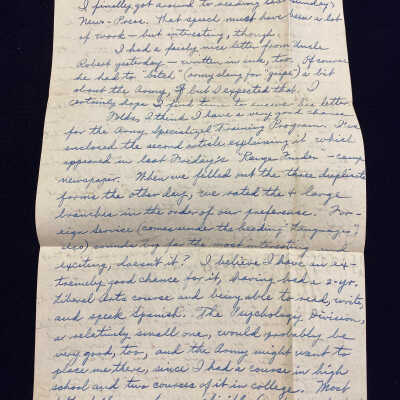 I finally got around to reading last Sunday's
News-Press. That speech must have been a lot
of work – but interesting, though.
I had a fairly nice letter from Uncle
Robert yesterday – written in ink, too. Of course
he had to "bitch" (army slang for "gripe") a bit
about the Army, but I expected that. I
certainly hope I find time to answer his letter.
Folks, I think I have a very good chance
for the Army Specialized Training Program. I've
enclosed the second article explaining it which
appeared in last Friday's "Range Finder" – camp
newspaper. When we filled out the three duplicate
forms the other day, we rated the 4 large
branches in the order of our preference. For-
eign Service (comes under the heading "Languages",
also) sounds by far the most interesting and
exciting, doesn't it? I believe I have an ex-
tremely good chance for it, having had a 2-yr.
Liberal Arts course and being able to read, write,
and speak Spanish. The Psychology Division,
a relatively small one, would probably be
very good, too, and the Army might want to
place me there, since I had a course in high
school and two courses of it in college. Most